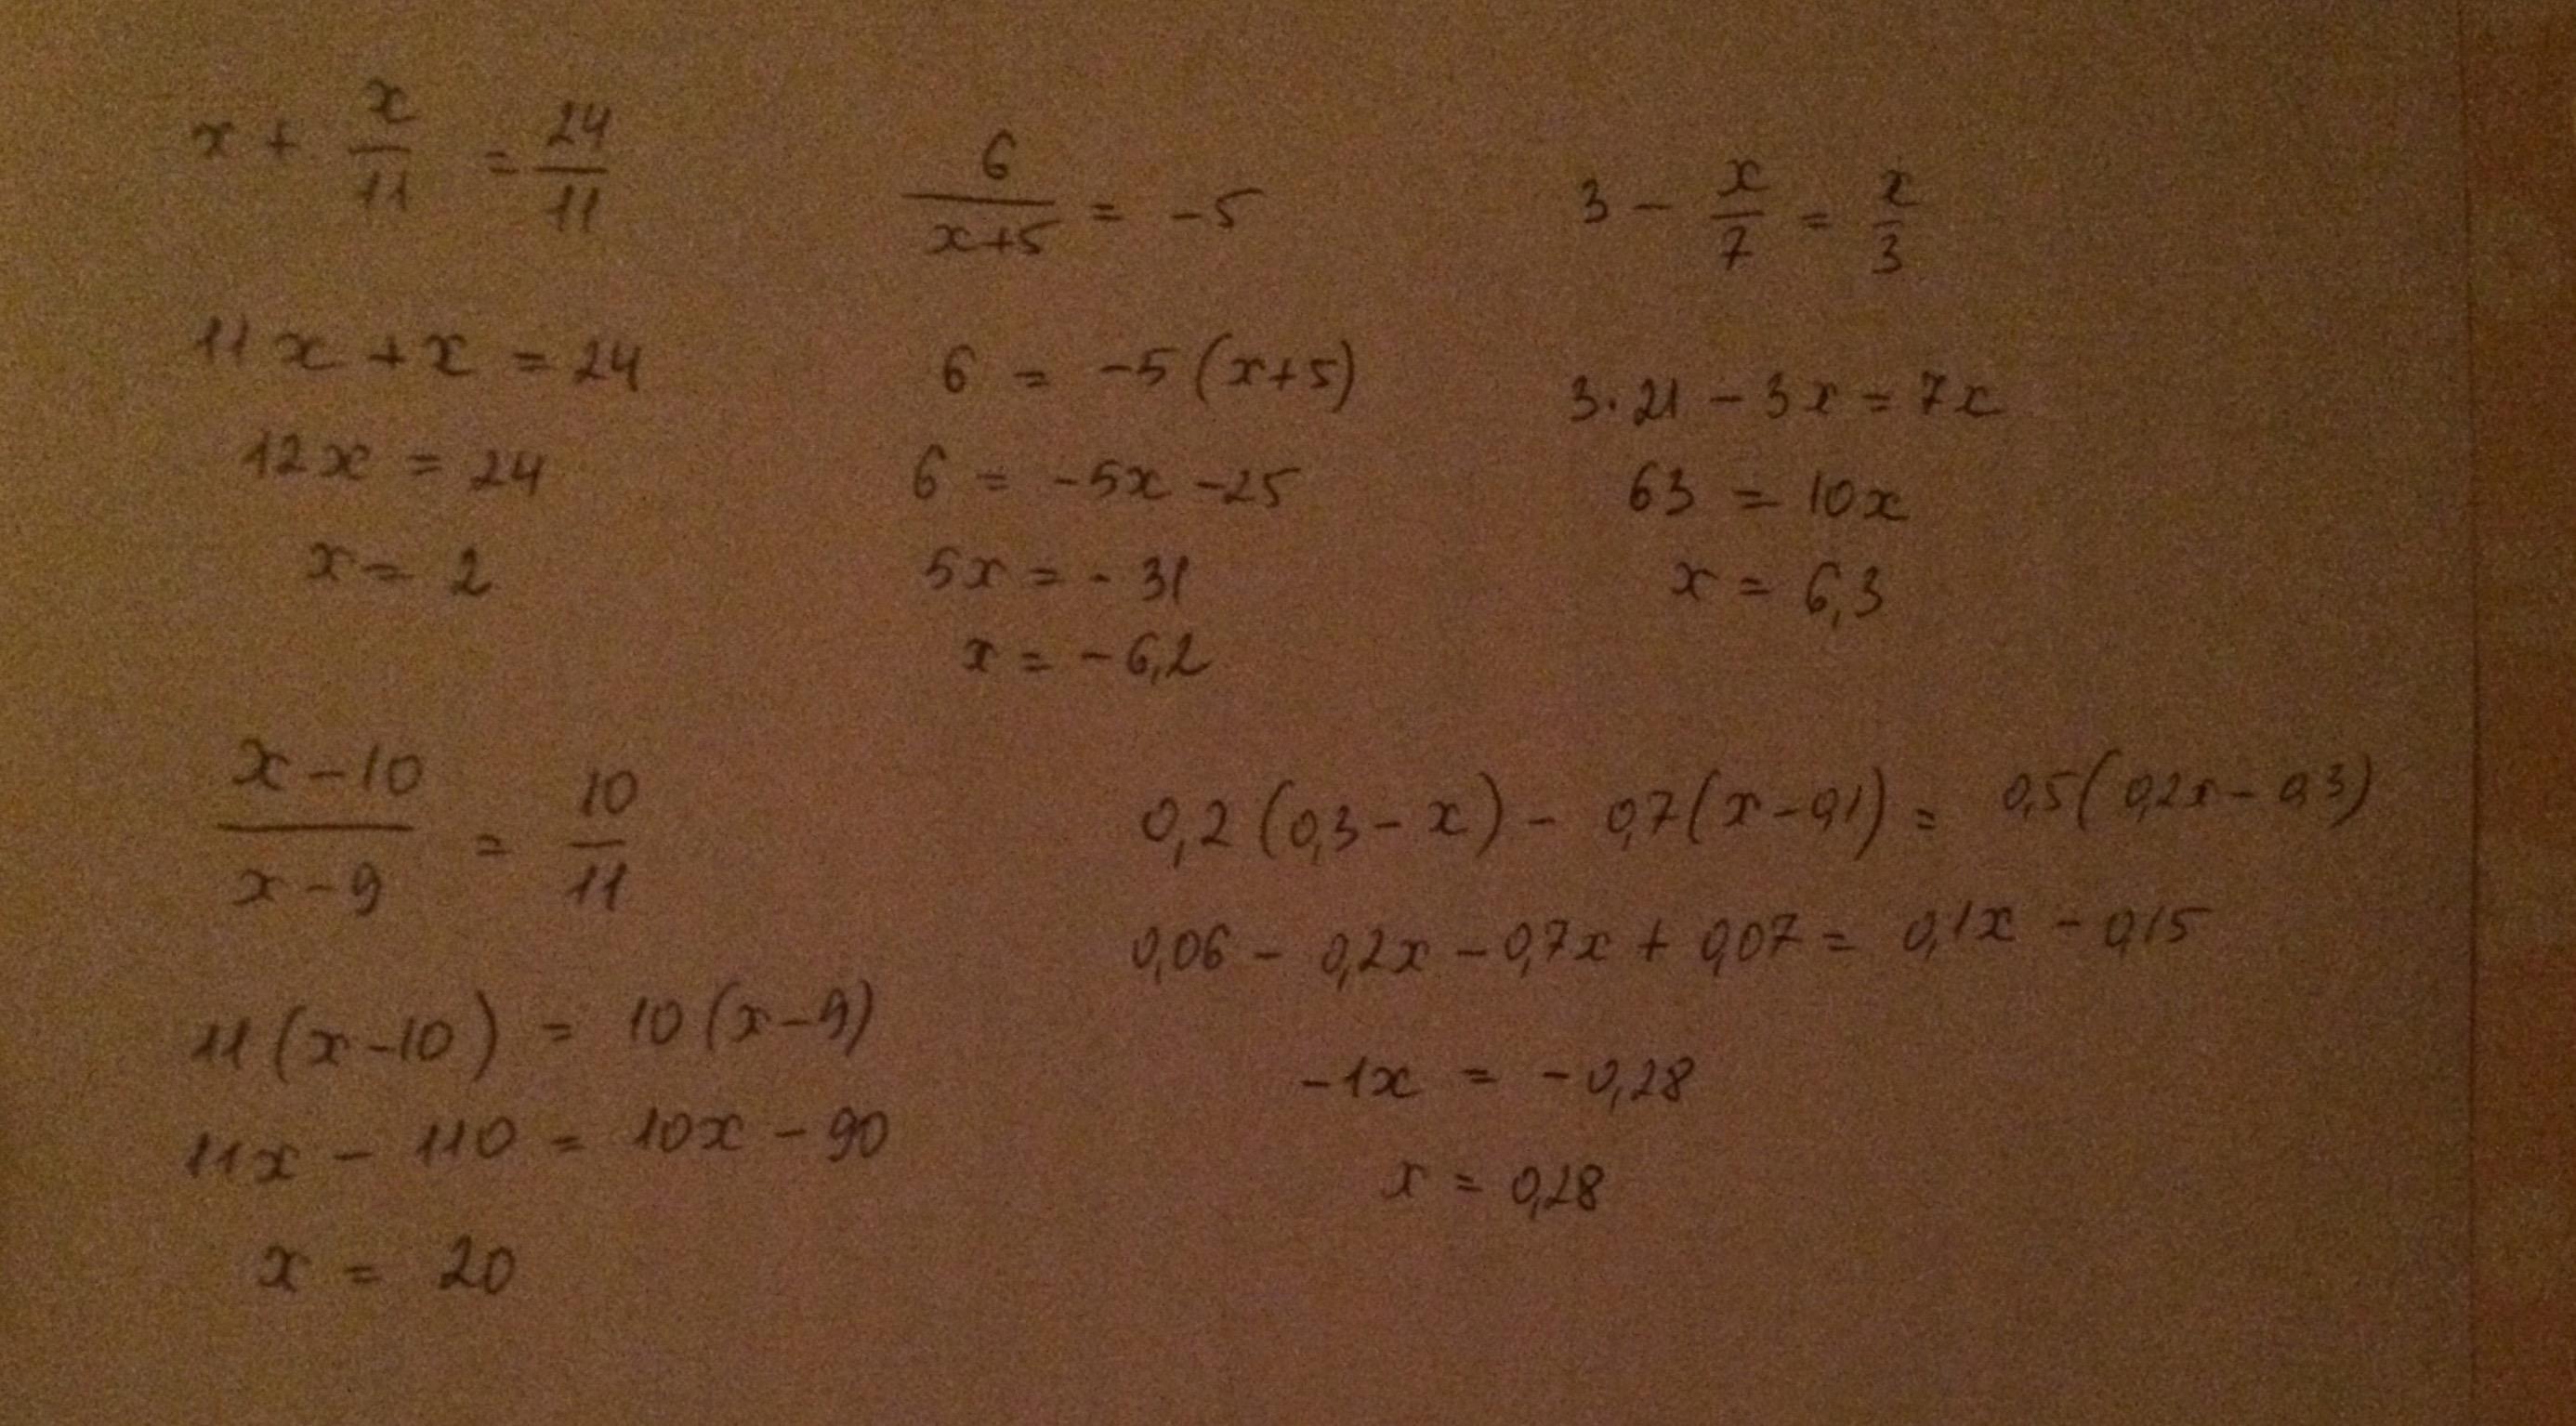 x + x/11 = 24/11
11x + x = 24
12x = 24
x = 2
6/(x+5) = -5
6 = -5(x+5)
6 = -5x - 25
5x = -31
x = -6,2
3 - x/7 = x/3
3·21 - 3x = 7x
63 = 10x
x = 6,3
(x-10)/(x-9) = 10/11
11(x-10) = 10(x-9)
11x - 110 = 10x - 90
x = 20
0,2(0,3 - x) - 0,7(x - 0,1) = 0,5(0,2x - 0,3)
0,06 - 0,2x - 0,7x + 0,07 = 0,1x - 0,15
-1x = -0,28
x = 0,28